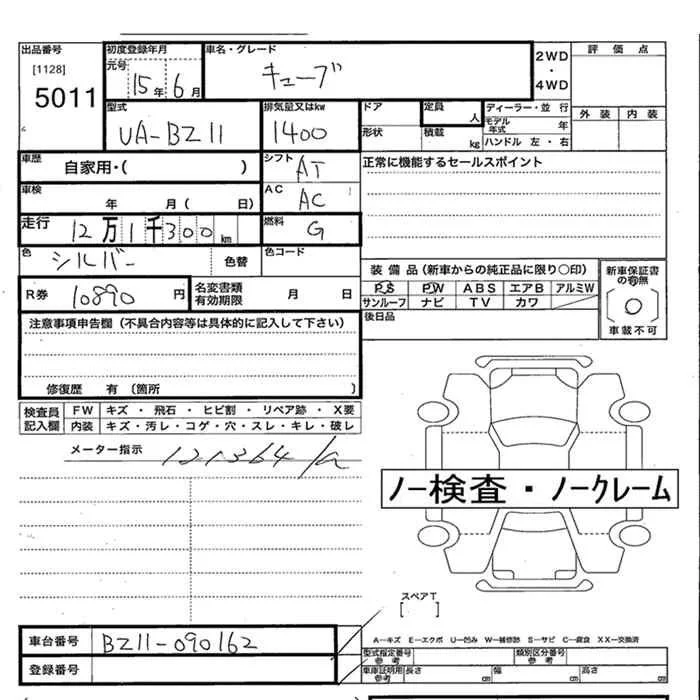 出品番号
[1128]
5011
初度登録年月
元号
15年 6月
車名・グレード
キューブ
2WD
・
4WD
評価点
外装 内装
型式
UA-BZ11
排気量又はkw
1400
ドア
形状
定員
人
積載
kg
ディーラー・並行
モデル年式 年
ハンドル 左・右
車歴
自家用・( )
シフト
AT
正常に機能するセールスポイント
車検
年 月( 日)
AC
AC
走行
12万1千300km
燃料
G
色
シルバー
色替
色コード
R券
10890円
名変書類
有効期限
月 日
装備品(新車からの純正品に限り○印)
PS PW ABS エアB アルミW
サンルーフ ナビ TV カワ
新車保証書
の有無
○
車載不可
後日品
注意事項申告欄(不具合内容等は具体的に記入して下さい)
修復歴 有 〔箇所 〕
検査員
記入欄
FW キズ・飛石・ヒビ割・リペア跡・X要
内装 キズ・汚レ・コゲ・穴・スレ・キレ・破レ
メーター指示
121364
ノー検査・ノークレーム
スペアT
[ ]
A―キズ E―エクボ U―凹み W―補修跡 S―サビ C―腐食 XX―交換済
車台番号
BZ11-090162
登録番号
型式指定番号
参考
類別区分番号
参考
車庫証明用
参考
長さ cm 幅 cm 高さ cm